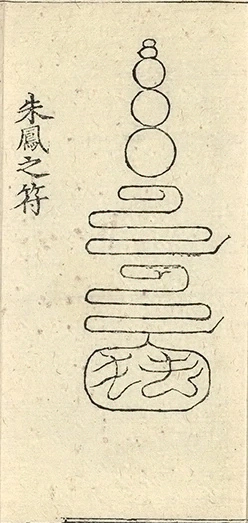 朱鳳之符